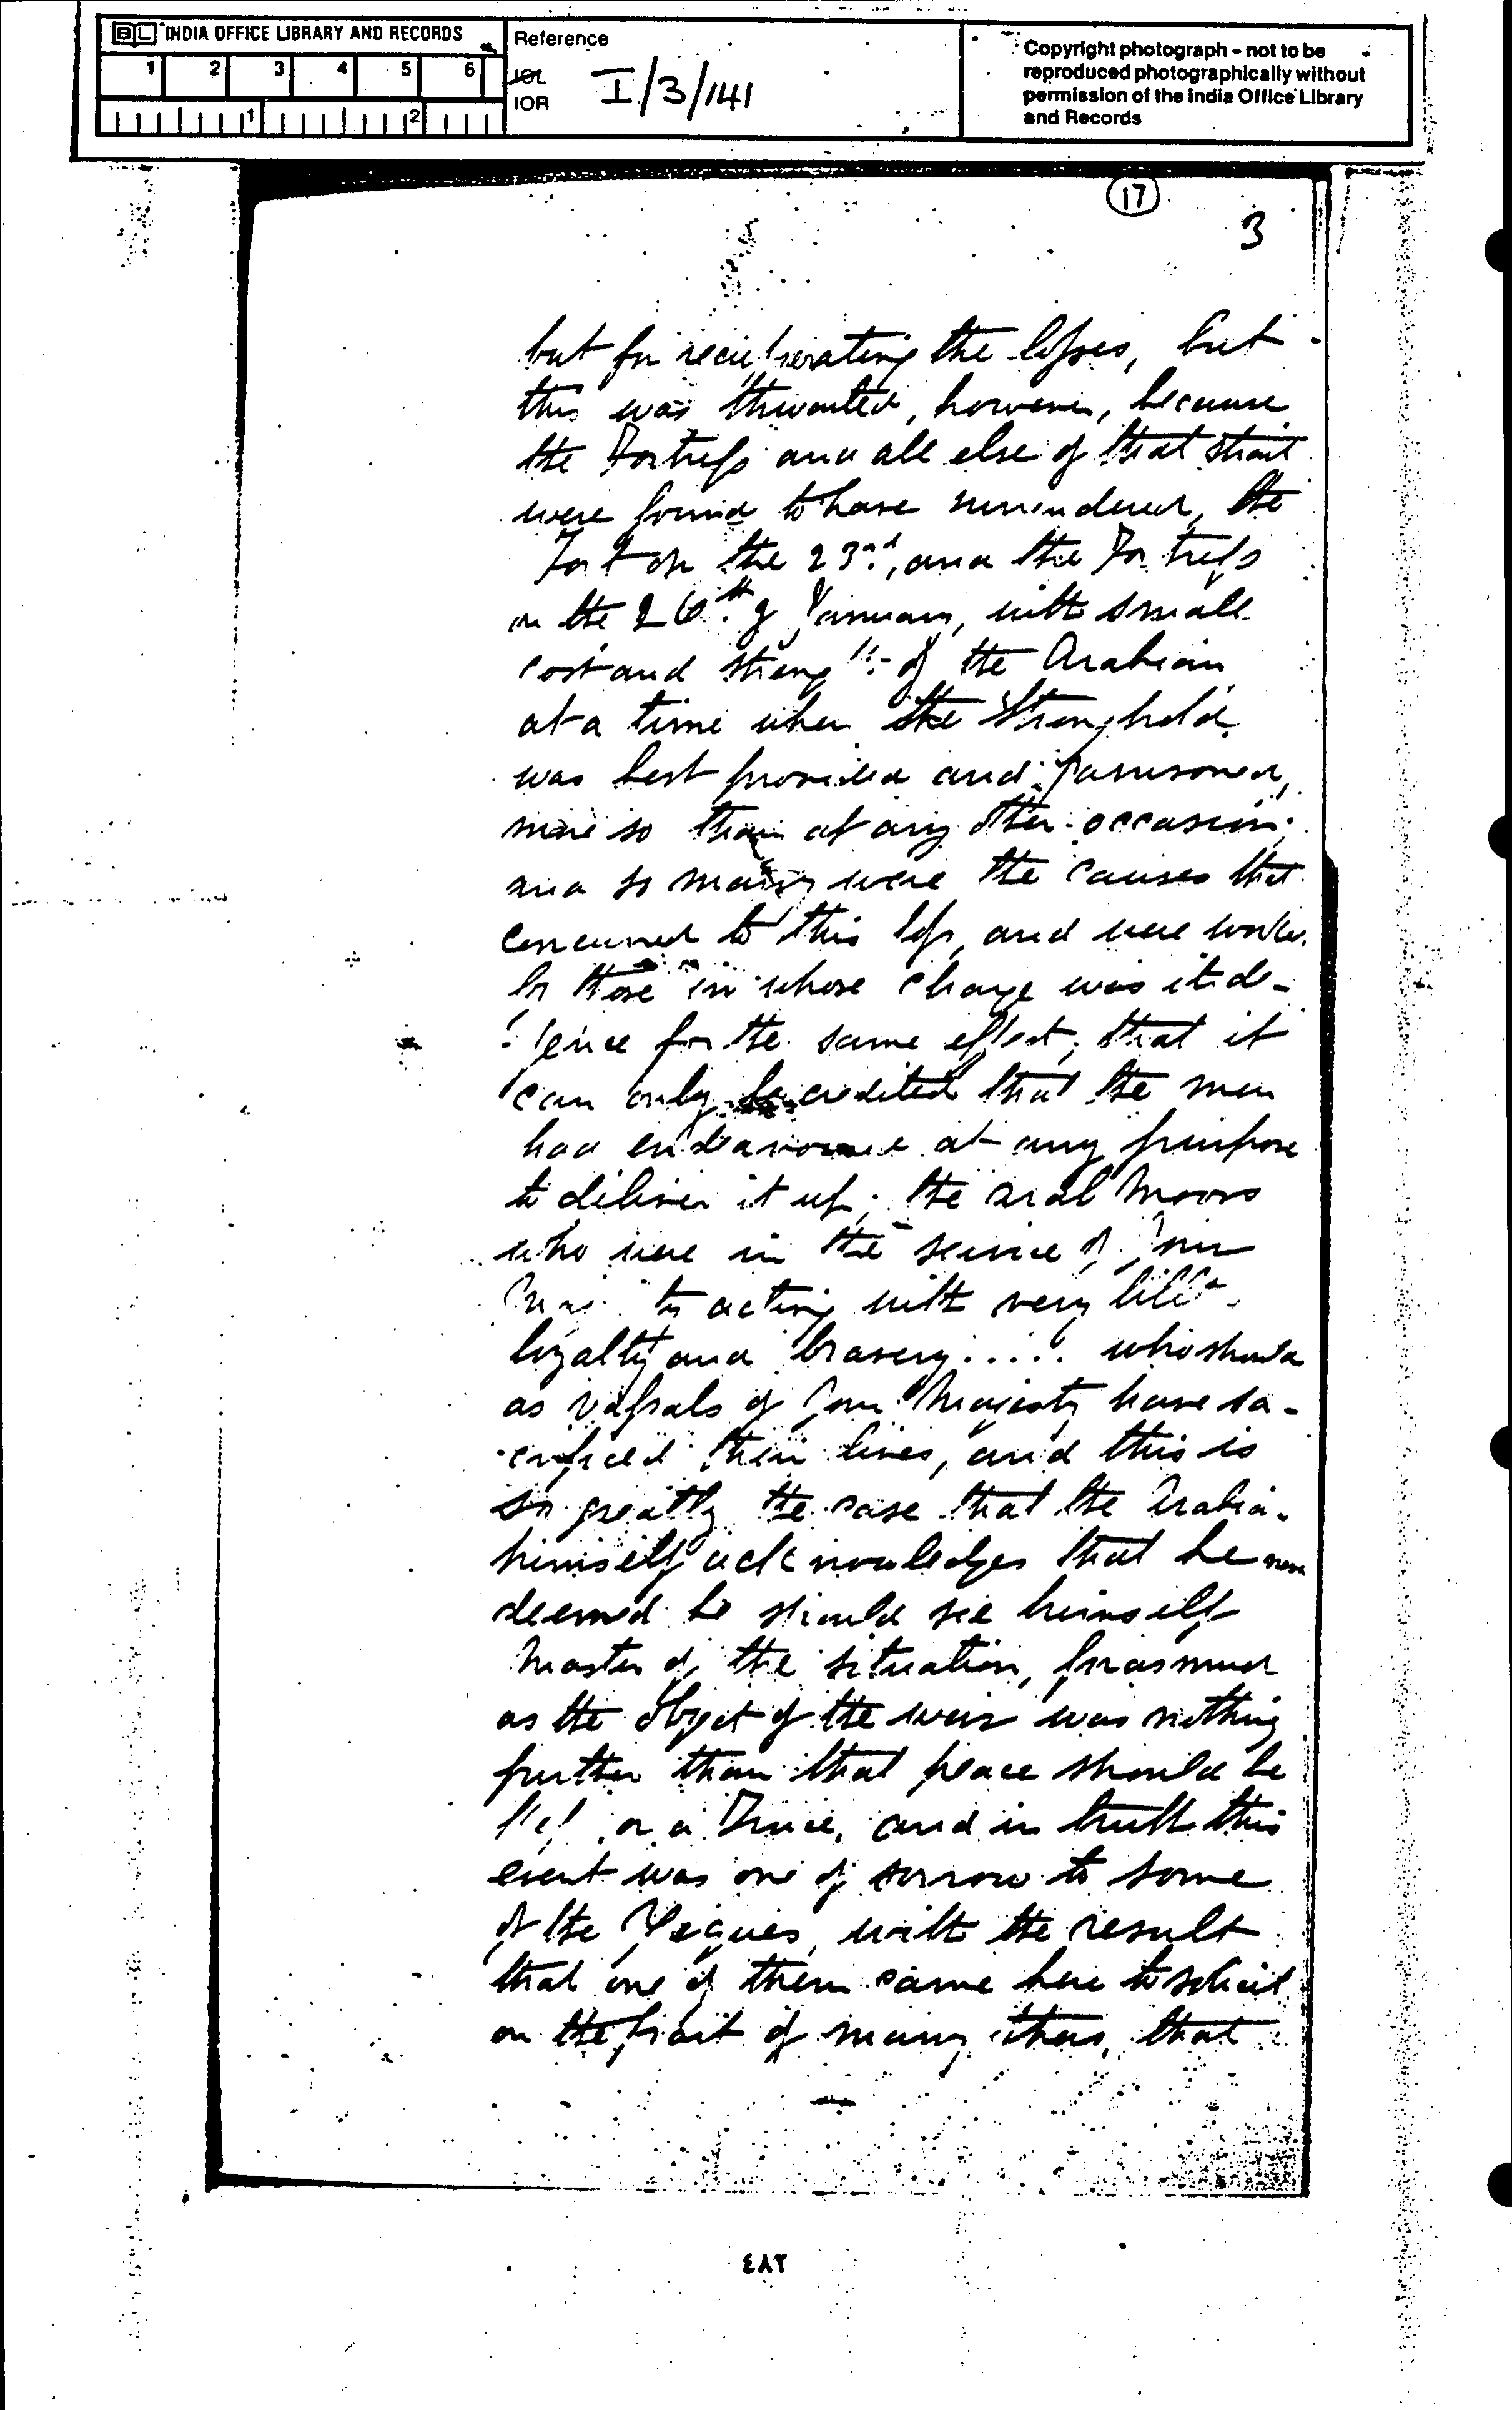 BL INDIA OFFICE LIBRARY AND RECORDS
1 2 3 4 5 6
1 2
Reference
IOL
IOR
I/3/141
Copyright photograph - not to be
reproduced photographically without
permission of the India Office Library
and Records
17
3
but for recuperating the losses, but
this was thwarted, however, because
the Fortress and all else of that strait
were found to have surrendered, the
Fort on the 23rd, and the Fortress
on the 26th of January, with small
cost and strength of the Arabian
at a time when the Stronghold
was best provided and garrisoned,
more so than at any other occasion;
and so many were the causes that
concurred to this loss, and were
by those in whose charge was its de-
fence for the same effect, that it
can only be credited that the men
had endeavoured at any purpose
to deliver it up; the Arab Moors
who were in the service of Your
Majesty acting with very little
loyalty and bravery..... who should
as vassals of Your Majesty have sa-
crificed their lives, and this is
so greatly the case that the Arabian
himself acknowledges that he never
deemed he should see himself
Master of the situation, forasmuch
as the object of the war was nothing
further than that peace should be
or a Truce, and in truth this
event was one of sorrow to some
of the Xeques, with the result
that one of them came here to solicit
on the part of many others, that
٤٨٢